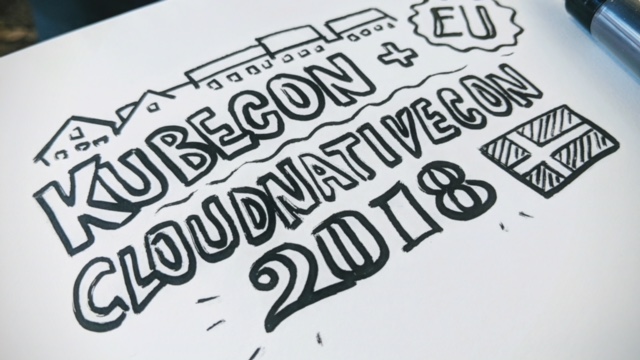 KUBECON + EU
CLOUDNATIVECON
2018